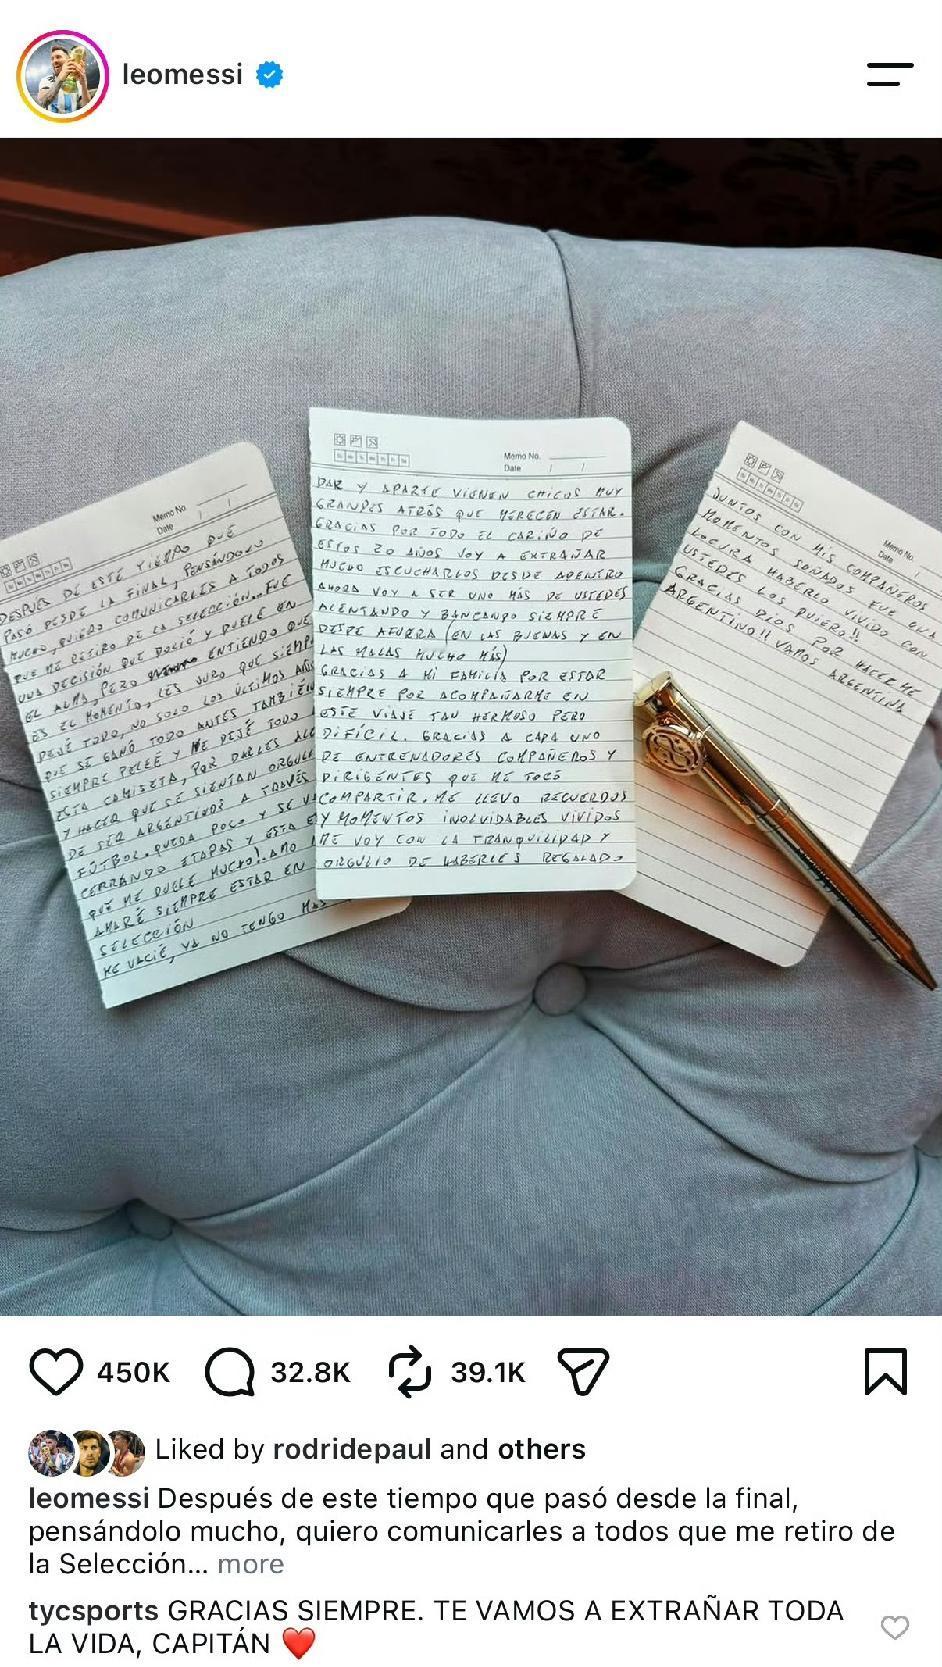 leomessi
Memo No.
Date / /
DESPUES DE ESTE TIEMPO QUE
PASÓ DESDE LA FINAL, PENSÁNDOLO
MUCHO, QUIERO COMUNICARLES A TODOS
QUE ME RETIRO DE LA SELECCIÓN. FUE
UNA DECISIÓN QUE DOLIÓ Y DUELE EN
EL ALMA, PERO ENTIENDO QUE
ES EL MOMENTO, LES JURO QUE SIEMP
DEJÉ TODO, NO SOLO LOS ÚLTIMOS AÑOS
QUE SE GANÓ TODO ANTES TAMBIÉN
SIEMPRE PELEÉ Y ME DEJÉ TODO
ESTA CAMISETA, POR DARLES ALE
Y HACER QUE SE SIENTAN ORGULL
DE SER ARGENTINOS A TRAVÉS
FÚTBOL. QUEDA POCO Y SE V
CERRANDO ETAPAS Y ESTA E
QUE ME DUELE MUCHO! AMO
AMARÉ SIEMPRE ESTAR EN
SELECCIÓN
ME VACIÉ, YA NO TENGO MAS
Memo No.
Date / /
DAR Y APARTE VIENEN CHICOS MUY
GRANDES ATRÁS QUE MERECEN ESTAR.
GRACIAS POR TODO EL CARIÑO DE
ESTOS 20 AÑOS VOY A EXTRAÑAR
MUCHO ESCUCHARLOS DESDE ADENTRO
AHORA VOY A SER UNO MÁS DE USTEDES
ALENTANDO Y BANCANDO SIEMPRE
DESDE AFUERA (EN LAS BUENAS Y EN
LAS MALAS MUCHO MÁS)
GRACIAS A MI FAMILIA POR ESTAR
SIEMPRE POR ACOMPAÑARME EN
ESTE VIAJE TAN HERMOSO PERO
DIFÍCIL. GRACIAS A CADA UNO
DE ENTRENADORES COMPAÑEROS Y
DIRIGENTES QUE ME TOCÓ
COMPARTIR. ME LLEVO RECUERDOS
Y MOMENTOS INOLVIDABLES VIVIDOS
ME VOY CON LA TRANQUILIDAD Y
ORGULLO DE HABERLES REGALADO
Memo No.
Date /
JUNTOS CON MIS COMPAÑEROS
MOMENTOS SOÑADOS FUE UNA
LOCURA HABERLO VIVIDO CON
USTEDES LOS QUIERO!!
GRACIAS DIOS POR HACERME
ARGENTINO!! VAMOS
ARGENTINA
450K 32.8K 39.1K
Liked by rodridepaul and others
leomessi Después de este tiempo que pasó desde la final,
pensándolo mucho, quiero comunicarles a todos que me retiro de
la Selección... more
tycsports GRACIAS SIEMPRE. TE VAMOS A EXTRAÑAR TODA
LA VIDA, CAPITÁN ❤️